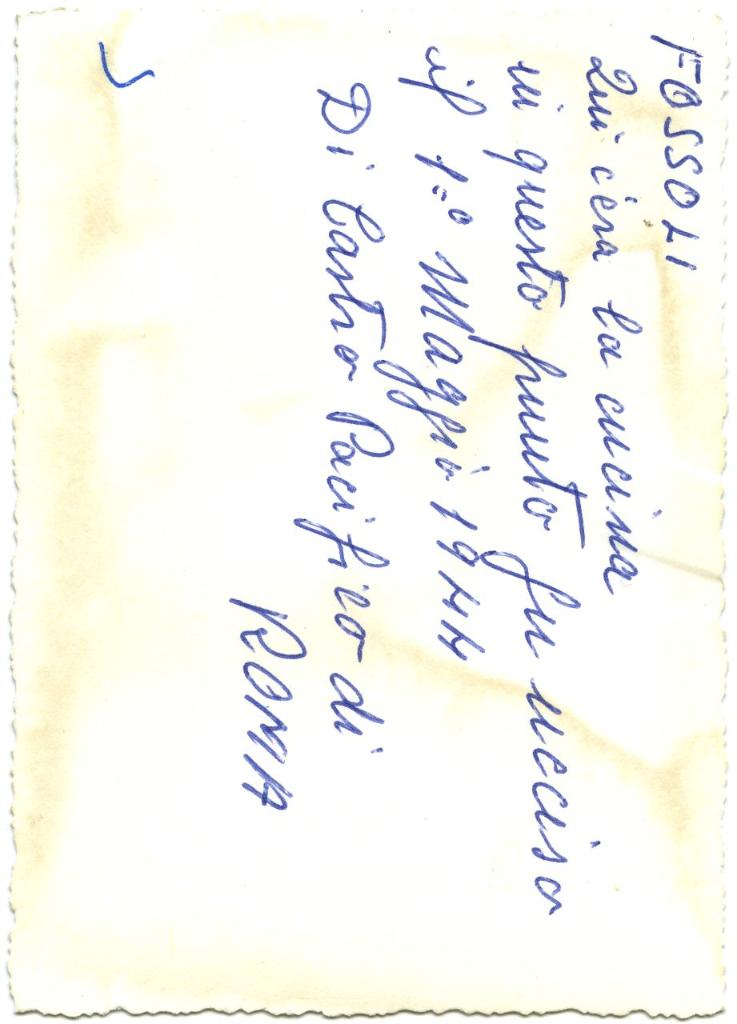 FOSSOLI
Qui c'era la cucina
in questo punto fu ucciso
il 1.º Maggio 1944
Di Castro Pacifico di
ROMA